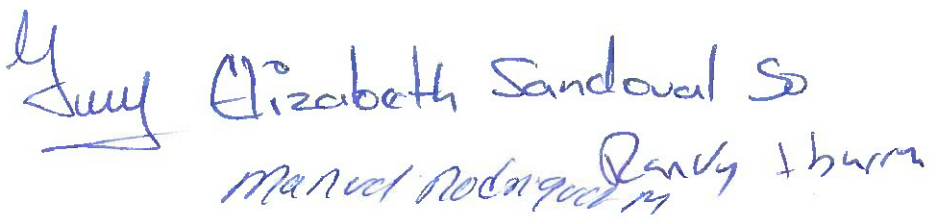 Yury Elizabeth Sandoval So
Randy Ibarra
Manuel Rodriguez M